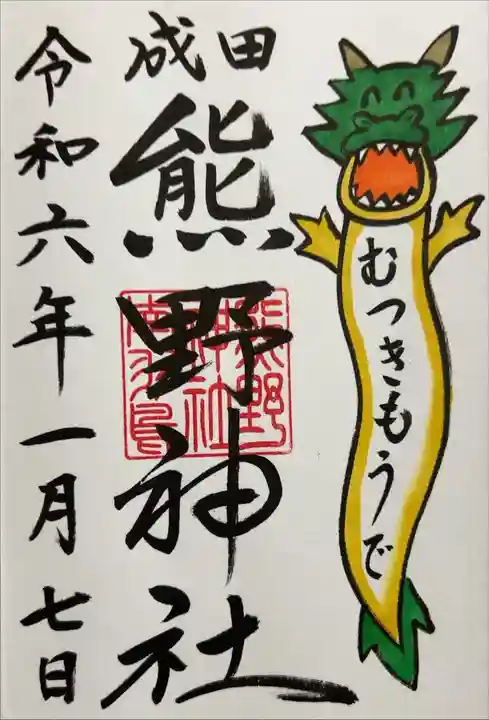 むつきもうで
成田
熊野神社
令和六年一月七日